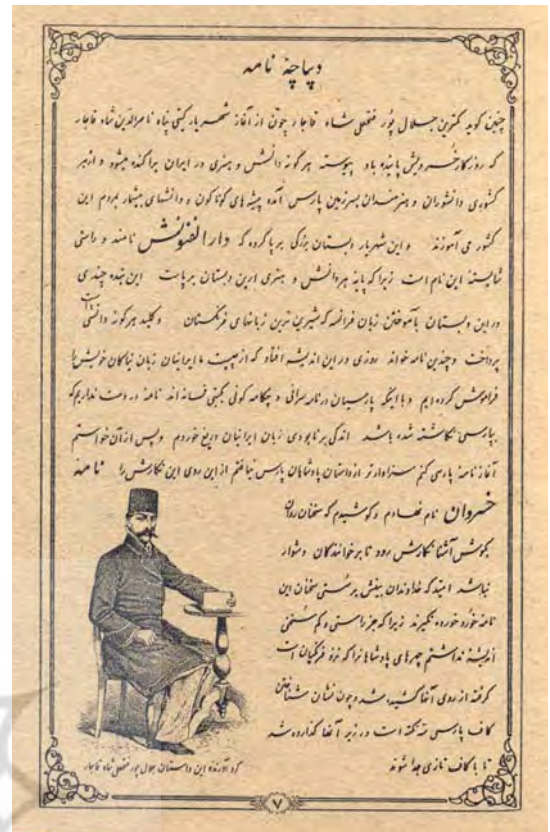 دیباچهٔ نامه
چنین گوید کمترین جلال پور فتحعلی شاه قاجار چون از آغاز شهریار گیتی پناه ناصرالدین شاه قاجار
که روزگار خسرویش پاینده باد پیوسته هر گونه دانش و هنری در ایران پراکنده میشود و از هر
کشوری دانشوران و هنرمندان بسرزمین پارس آمده پیشه های گوناگون و دانشهای بیشمار بمردم این
کشور می آموزند و این شهریار دبستان بزرگی برپا کرده که دارالفنونش نامند و راستی
شایستهٔ این نام است زیرا که پایهٔ هر دانش و هنری ازین دبستان برپاست این بنده چندی
در این دبستان بآموختن زبان فرانسه که شیرین ترین زبانهای فرنگستان و کلید هر گونه دانشی است
پرداخت و چندین نامه خواند روزی در این اندیشه افتاد که از چیست ما ایرانیان زبان نیاکان خویش را
فراموش کرده ایم و با اینکه پارسیان در نامه سرائی و چکامه گوئی بگیتی فسانه اند نامهٔ در دست نداریم که
بپارسی نگاشته شده باشد اندکی بر نابودی زبان ایرانیان دریغ خوردم و پس از آن خواستم
آغاز نامهٔ پارسی کنم سزاوارتر از داستان پادشاهان پارس نیافتم از این روی این نگارش را نامهٔ
خسروان نام نهادم و کوشیدم که سخنان روان
بگوش آشنا نگارش رود تا بر خوانندگان دشوار
نباشد امید که خداوندان بینش بر سستی سخنان این
نامهٔ خورد خورده نگیرند زیرا که جز راستی و کم سخنی
اندیشهٔ نداشتم چهرهای پادشاهانرا که نزد فرنگیان است
گرفته از روی آنها کشیده شد و چون نشان شناختن
کاف پارسی سه نکته است در زیر آنها گذارده شد
تا با کاف تازی جدا شوند
گرد آورندهٔ این داستان جلال پور فتحعلی شاه قاجار
۷